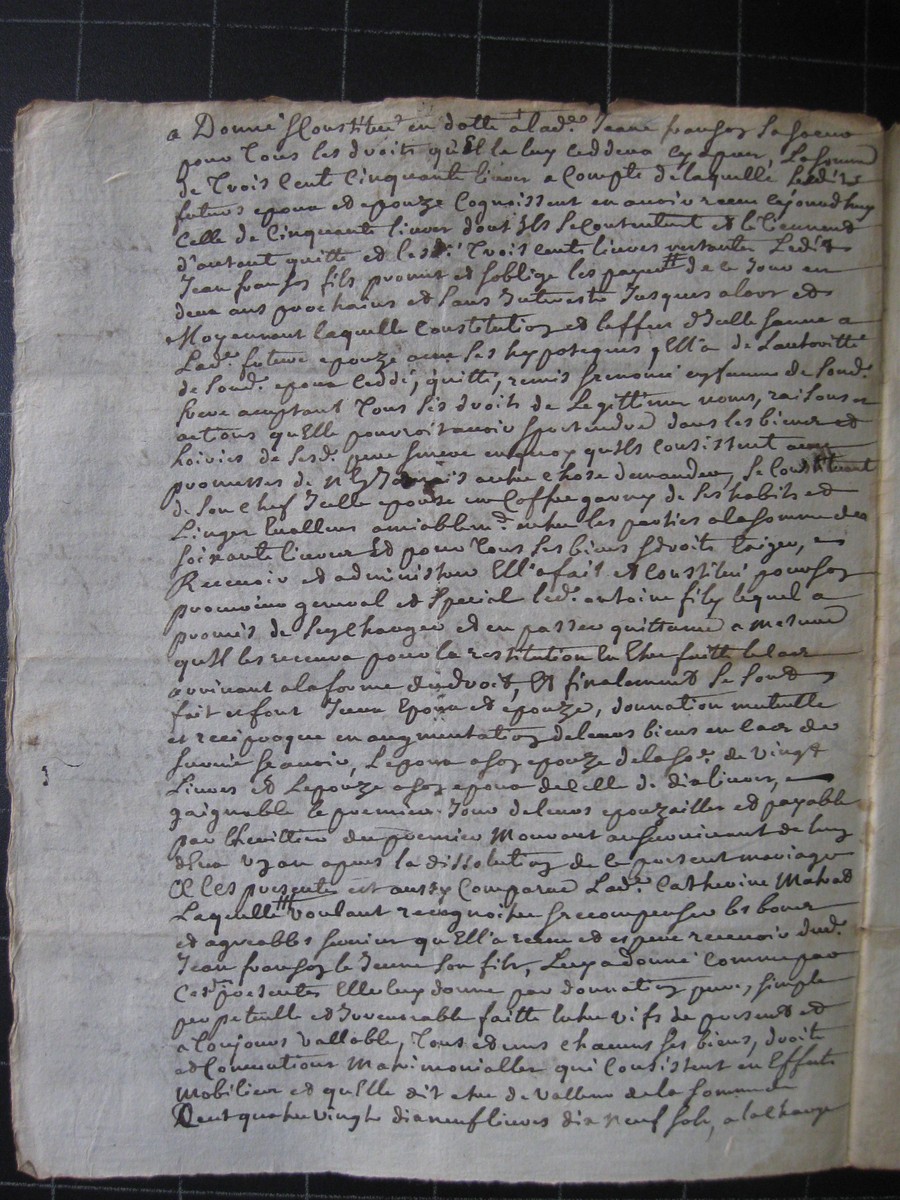 a Donné & Constitué en dotte a lad.e Jeane françoy sa soeur
pour Tous les droits qu'Elle luy ceddera cy apres, La somme
de Trois Cent Cinquante livres a Compte de laquelle lesdits
futurs epoux et epouze Cognoissent en avoir receu cejourdhuy
Celle de Cinquante livres dont ils se Contentent et le tiennent
d'autant quitte et les d. Trois Cents livres restantes Ledit
Jean françois fils promet et soblige les payer de ce Jour en
deux ans prochains et sans Interests Jusques alors et
Moyennant laquelle Constitution et leffet d'Icelle sauve a
Lad.e future epouze avec ses hypoteques Ell'a de Lauthorité
de sond. epoux ceddé, quitté, remis & renoncé en faveur de sond.
frere aceptant Tous ses droits de Legittime noms, raisons et
actions qu'Elle pourroit avoir & pretendre dans les biens et
hoiries de sesd. pere & mere en quoy qu'ils Consistent avec
promesses de n'y Jamais autre chose demander, se Constituant
de son chef Icelle epouse un Coffre garny de ses habits et
Linges Evalluez amiablem.t entre les parties a la somme de
soixante livres Et pour Tous ses biens & droits Exiger,
Recevoir et administrer Ell'a fait et Constitué pour son
procureur general et special led. antoine fily lequel a
promis de sey Charger et en passer quittance a mesure
qu'Il les recevra pour la restitution En Etre faitte le cas
arrivant a la forme du droit, Et finalement se sont
fait et font Iceux Epoux et epouze, donnation mutuelle
et reciproque en augmentation de leurs biens en cas de
survie scavoir, Lepoux a son epouze de la so.e de vingt
Livres et Lepouze a son epoux de celle de dix livres,
gaignable le premier Jour de leurs epouzailles et payable
par Lheritier du premier Mourant au survivant de luy
d'eux un an apres la dissolution de ce present mariage
A Ces presentes est aussy Comparue Lad.e Catherine
Laquelle voulant recognoitre & recompenser les bons
et agreables services qu'Ell'a receu et espere recevoir dud.
Jean françoy le Jeune son fils, Luy a donné Comme par
Ces presentes Elle luy donne par donnation pure, simple
perpetuelle et Irrevocable faitte Entre vifs de present et
a Toujours vallable, Tous et uns chacuns ses biens, droits
et Conventions Matrimonialles qui Consistent en Effets
Mobiliers et qu'Elle dit etre de valleur de la somme de
Cent quatre vingts dix neuf livres dix neuf sols, a la charge